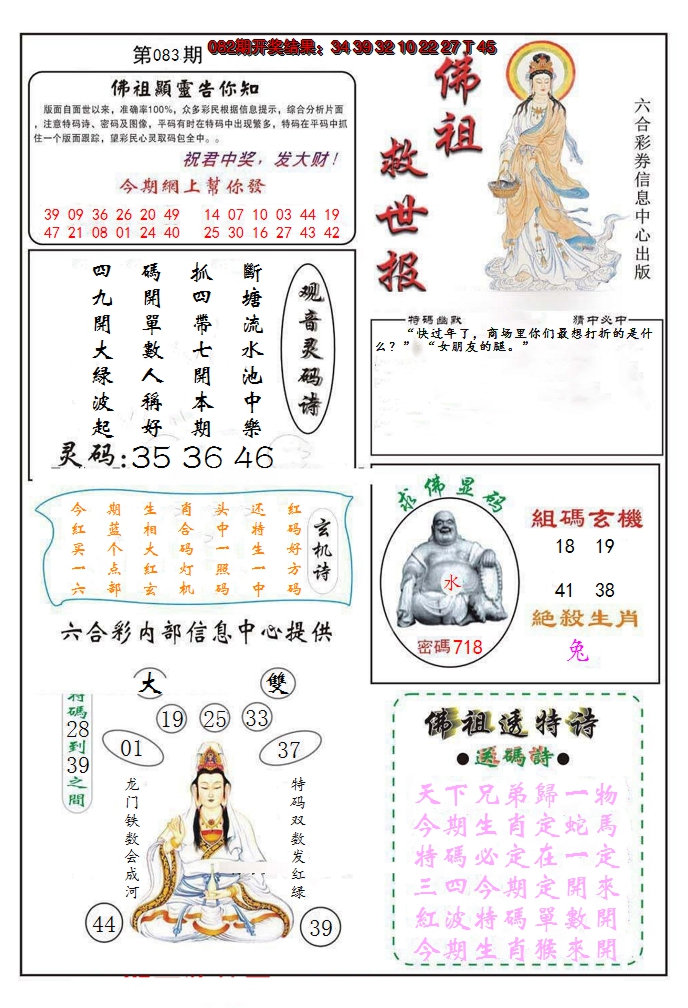 第083期
082期开奖结果：34 39 32 10 22 27 T 45
佛祖顯靈告你知
版面自面世以来，准确率100%，众多彩民根据信息提示，综合分析片面
，注意特码诗、密码及图像，平码有时在特码中出现繁多，特码在平码中抓
住一个版面跟踪，望彩民心灵取码包全中。。
祝君中奖，发大财！
今期網上幫你發
39 09 36 26 20 49 14 07 10 03 44 19
47 21 08 01 24 40 25 30 16 27 43 42
佛祖救世报
六合彩券信息中心出版
斷塘流水池中樂
抓四帶七開本期
碼開單數人稱好
四九開大緑波起
观音灵码诗
灵码:35 36 46
特碼幽默
猜中必中
“快过年了，商场里你们最想打折的是什
么？” “女朋友的腿。”
今期生肖头还红
红蓝相合中特码
买个大码一生好
一点红灯照一方
六部玄机码中码
玄机诗
六合彩内部信息中心提供
求佛显码
水
密碼718
組碼玄機
18 19
41 38
絶殺生肖
兔
大
雙
特碼28到39之間
19 25 33
01
37
龙门铁数会成河
特码双数发红绿
44
39
佛祖透特诗
●送碼詩●
天下兄弟歸一物
今期生肖定蛇馬
特碼必定在一定
三四今期定開來
紅波特碼單數開
今期生肖猴來開